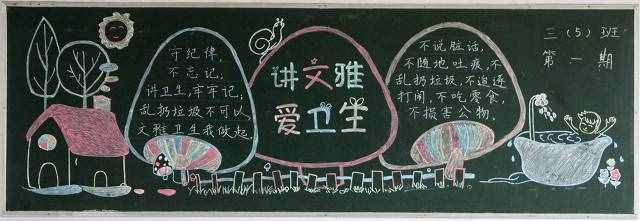 守纪律,
不忘记,
讲卫生,牢牢记;
乱扔垃圾不可以,
文雅卫生我做起.
讲文雅
爱卫生
不说脏话,
不随地吐痰,不
乱扔垃圾,不追逐
打闹,不吃零食,
不损害公物.
三(5)班
第一期